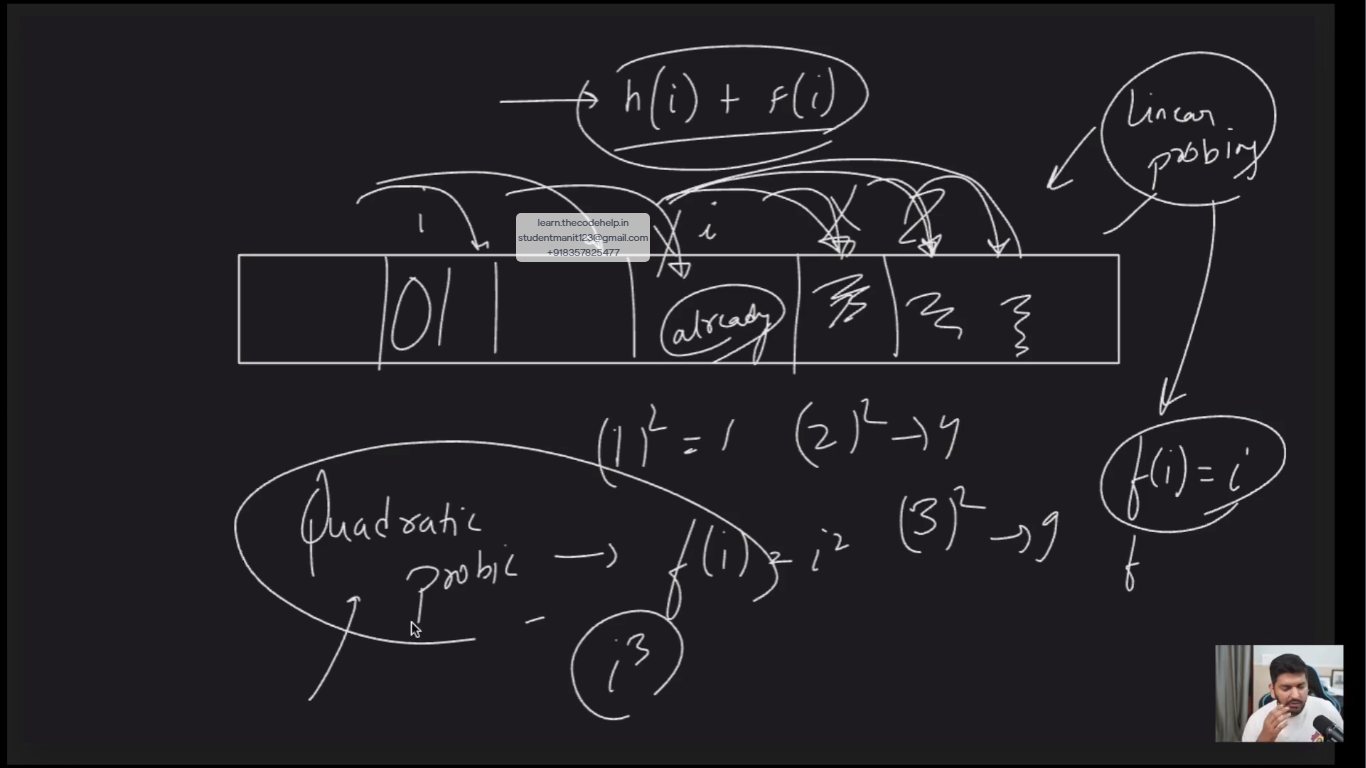 h(i) + f(i)
Linear
probing
learn.thecodehelp.in
studentmanit123@gmail.com
+918357825477
1
i
01
already
(1)² = 1
(2)² → 4
f(i) = i
Quadratic
probic → f(i) = i²
(3)² → 9
f
i³